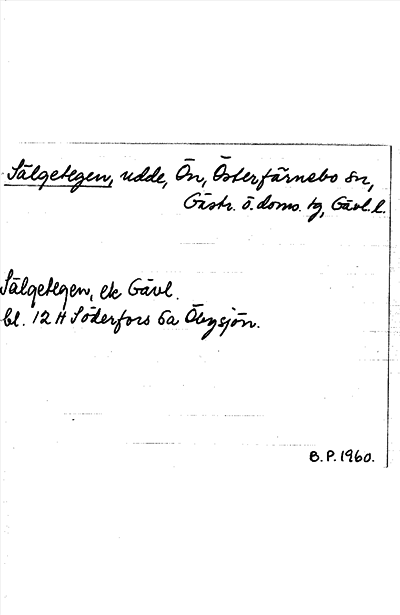 Sälgetegen, udde, Ön, Österfärnebo sn,
Gästr. ö. doms. tg, Gävl. l.
Sälgetegen, ek Gävl.
bl. 12 H Söderfors 6a Öbysjön.
B. P. 1960.